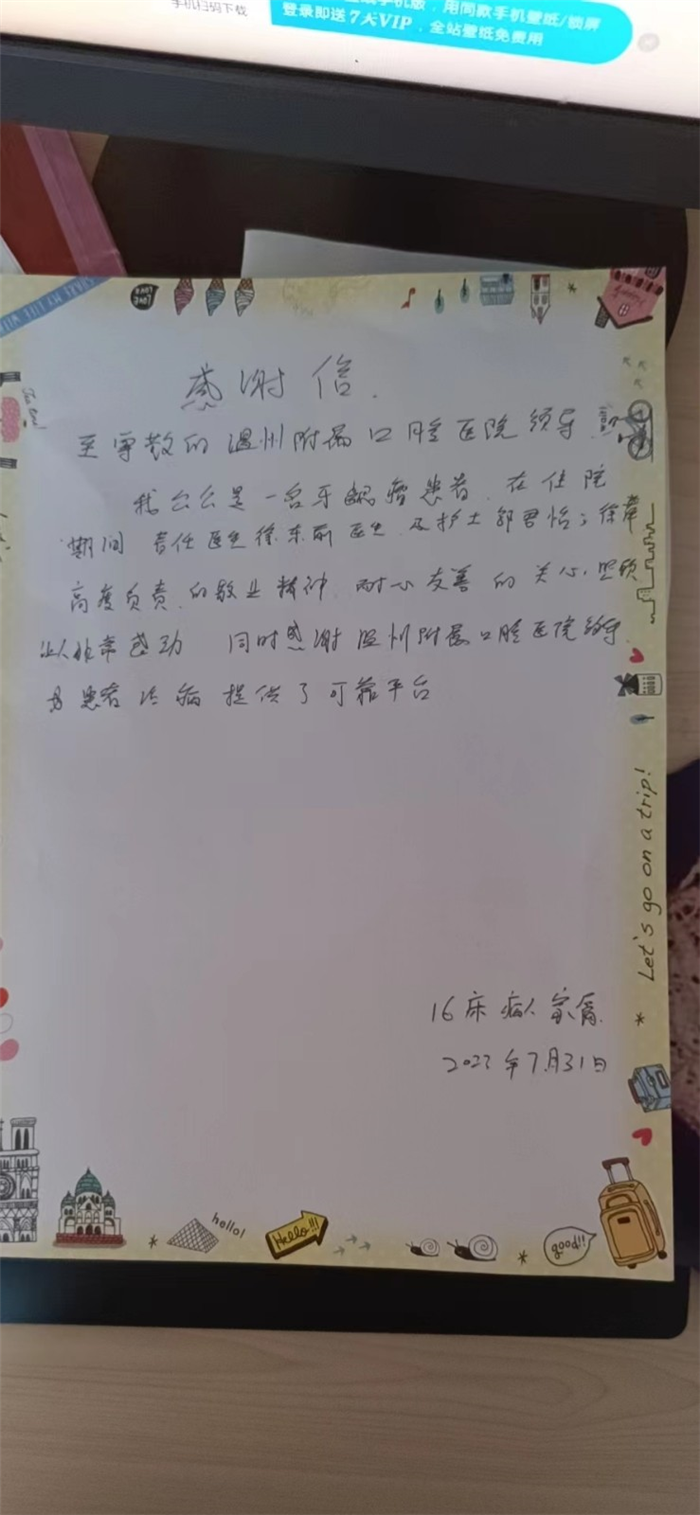 手机扫码下载
用同款手机壁纸/锁屏
登录即送7天VIP,全站壁纸免费用
感谢信
温州附属口腔医院领导
我公公是一名牙龈癌患者 在住院
期间 责任医生徐东前医生 及护士郭君怡
高度负责的敬业精神 耐心友善的关心
让人非常感动 同时感谢温州附属口腔医院领导
为患者治病提供了可靠平台
16床病人家属
2022年7月31日
Let's go on a trip!
hello!
Hello!!!
good!!